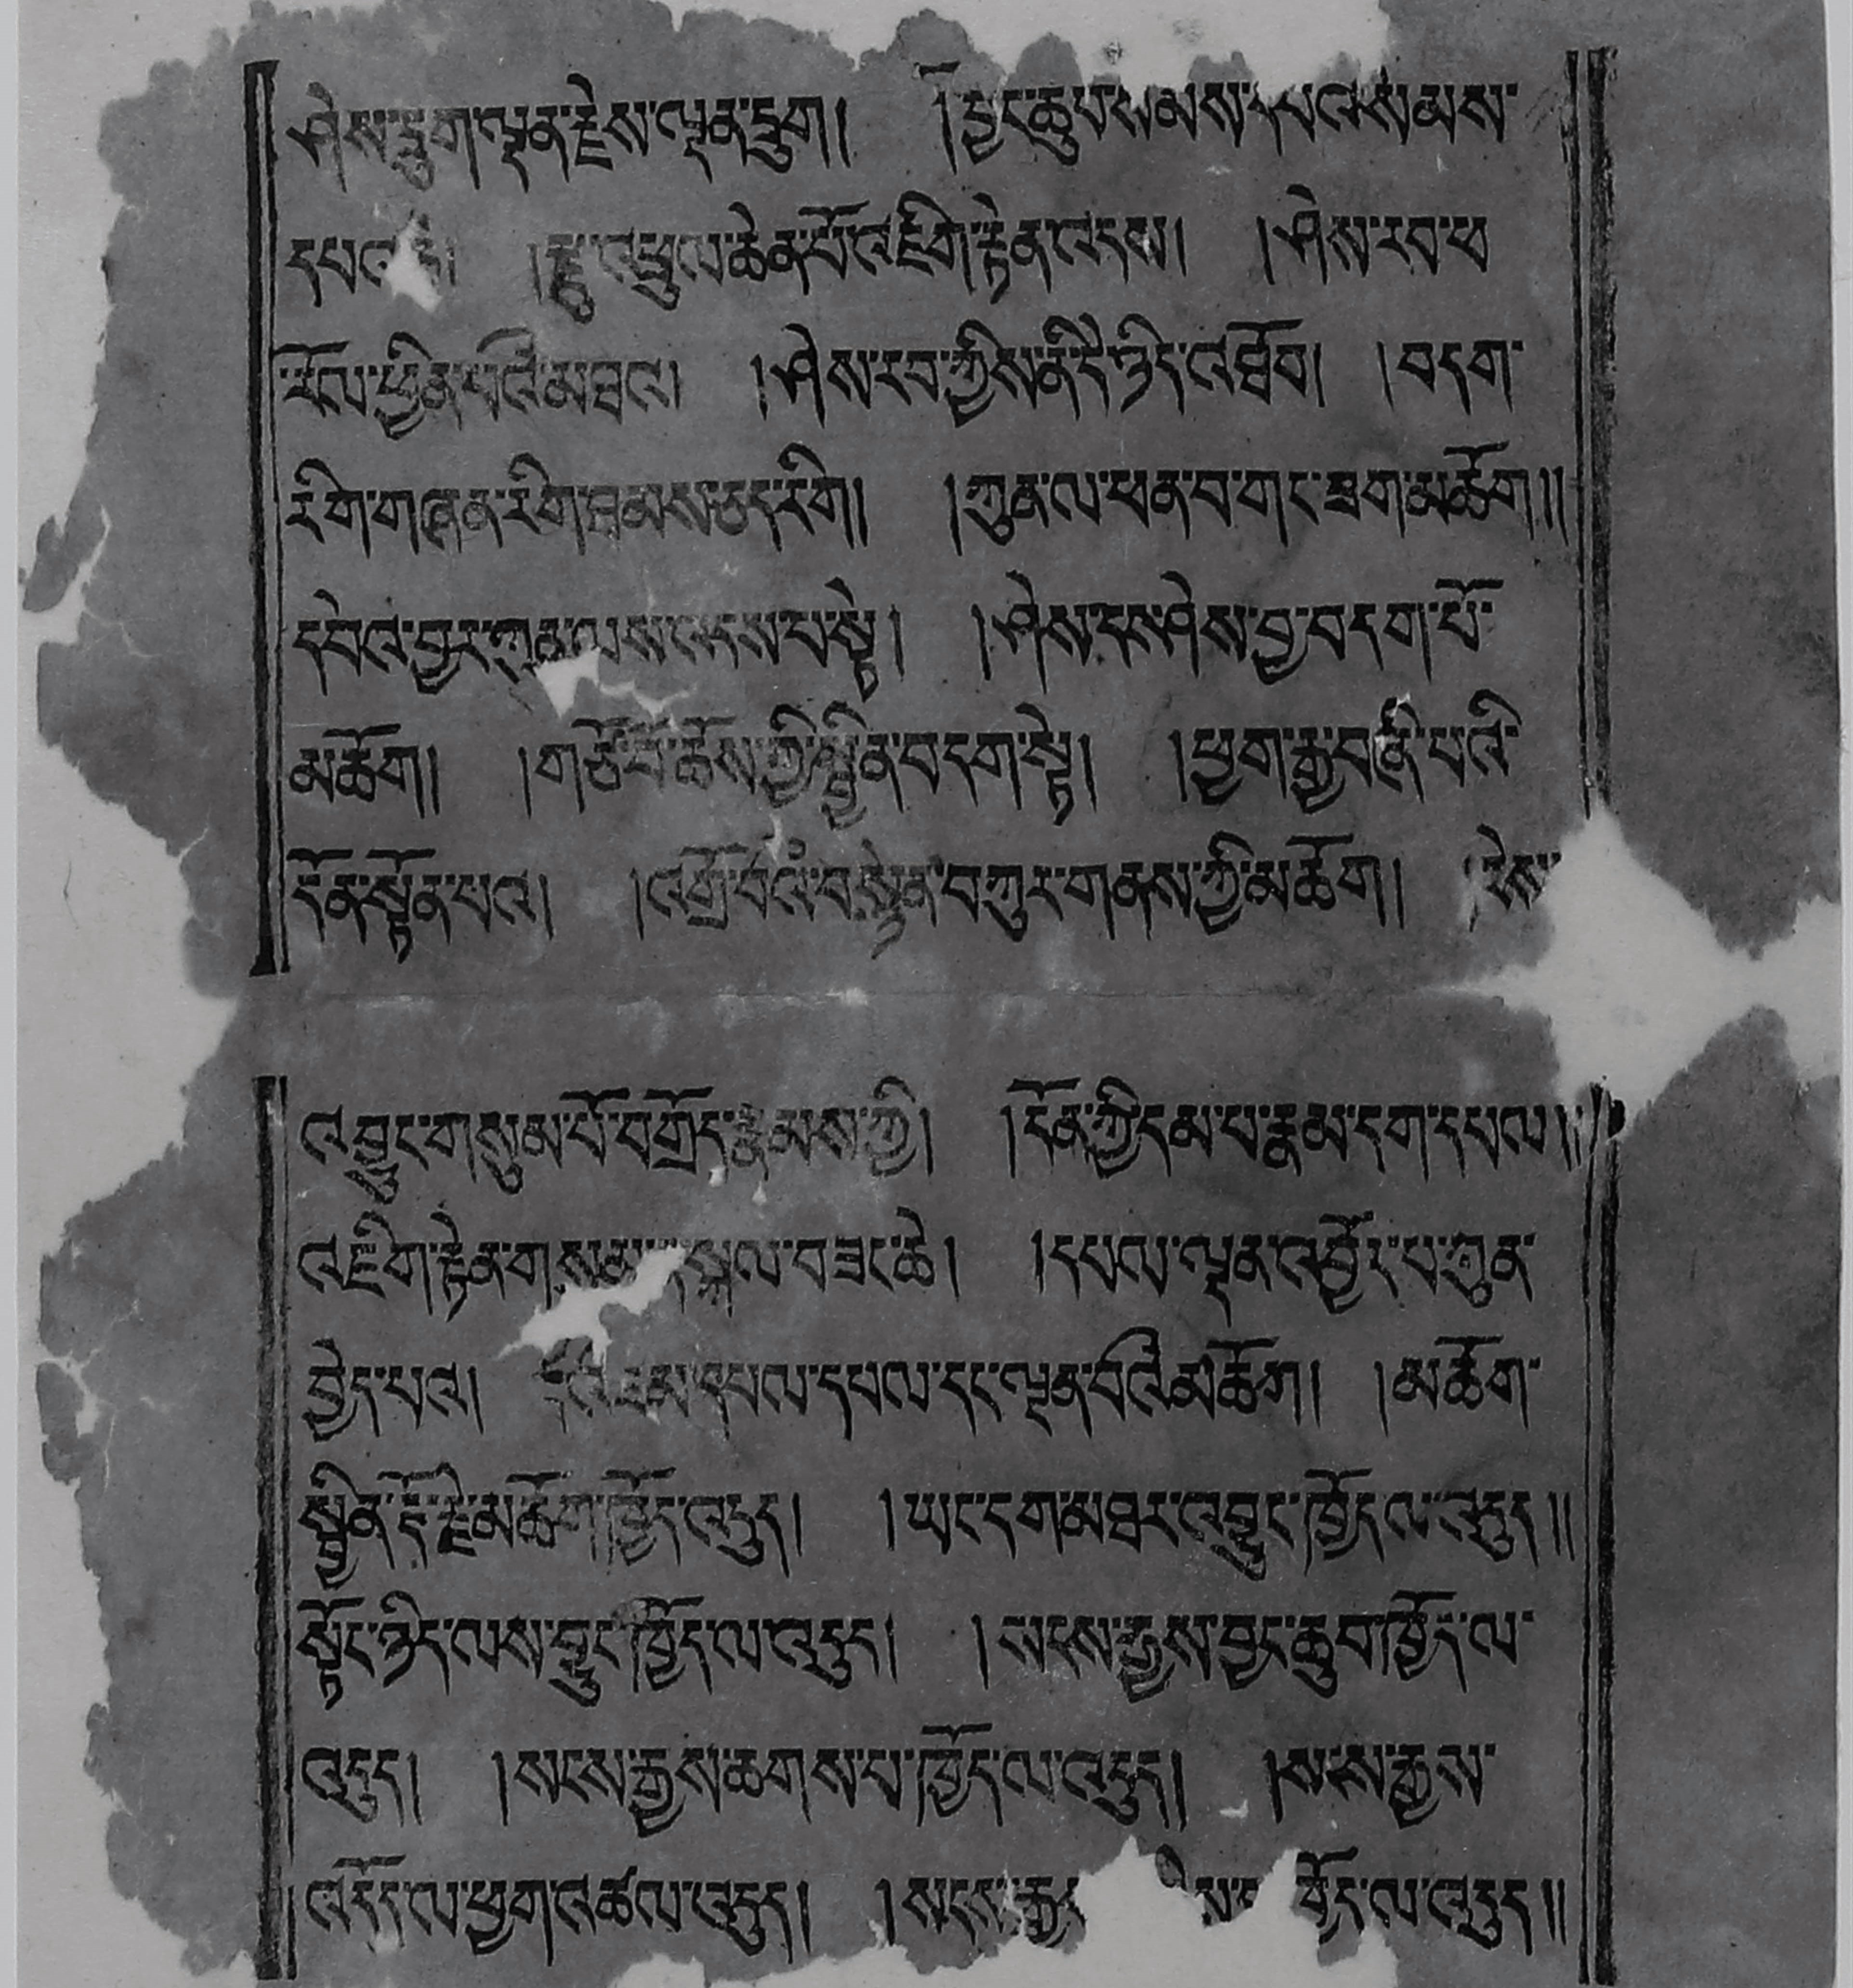 ཤེས་དྲུག་ལྡན་རྗེས་ལྡན་དྲུག། །བྱང་ཆུབ་སེམས་དཔའ་སེམས་
དཔའ །རྫུ་འཕྲུལ་ཆེན་པོ་འཇིག་རྟེན་འདས། །ཤེས་རབ་ཕ
རོལ་ཕྱིན་པའི་མཐའ། །ཤེས་རབ་ཀྱིས་ནི་དེ་ཉིད་འཐོབ། །བདག་
རིག་གཞན་རིག་ཐམས་ཅད་རིག། །ཀུན་ལ་ཕན་བ་གང་ཟག་མཆོག།།
དཔེའ་བྱར་ཀུན་ལས་འདས་པ་སྟེ། །ཤེས་དང་ཤེས་བྱ་བདག་པོ་
མཆོག། །གཙོ་བོ་ཆོས་ཀྱི་སྦྱིན་བདག་སྟེ། །ཕྱག་རྒྱ་བཞི་པའི་
དོན་སྟོན་པའ། །འགྲོ་བའི་བསྟེན་བཀུར་གནས་ཀྱི་མཆོག།
འབྱུང་གསུམ་པོ་བགྲོད་རྣམས་ཀྱི། །དོན་ཀྱི་དམ་པ་རྣམ་དག་དཔལ།།
འཇིག་རྟེན་གསུམ་ སྐལ་བཟང་ཆེ། །དཔལ་ལྡན་འབྱོར་པ་ཀུན་
བྱེད་པའ། དཔལ་དཔལ་དང་ལྡན་བའི་མཆོག། །མཆོག་
སྦྱིན་རྡོ་རྗེ་མཆོག་ཁྱོད་འདུད། །ཡང་དག་མཐར་འབྱུང་ཁྱོད་ལ་འདུད།།
སྟོང་ཉིད་ལས་བྱུང་ཁྱོད་ལ་འདུད། །སངས་རྒྱས་བྱང་ཆུབ་ཁྱོད་ལ་
འདུད། །སངས་རྒྱས་ཆགས་པ་ཁྱོད་ལ་འདུད། །སངས་རྒྱས་
འདོད་ལ་ཕྱག་འཚལ་འདུད། །སངས་རྒྱ ཁྱོད་ལ་འདུད།།